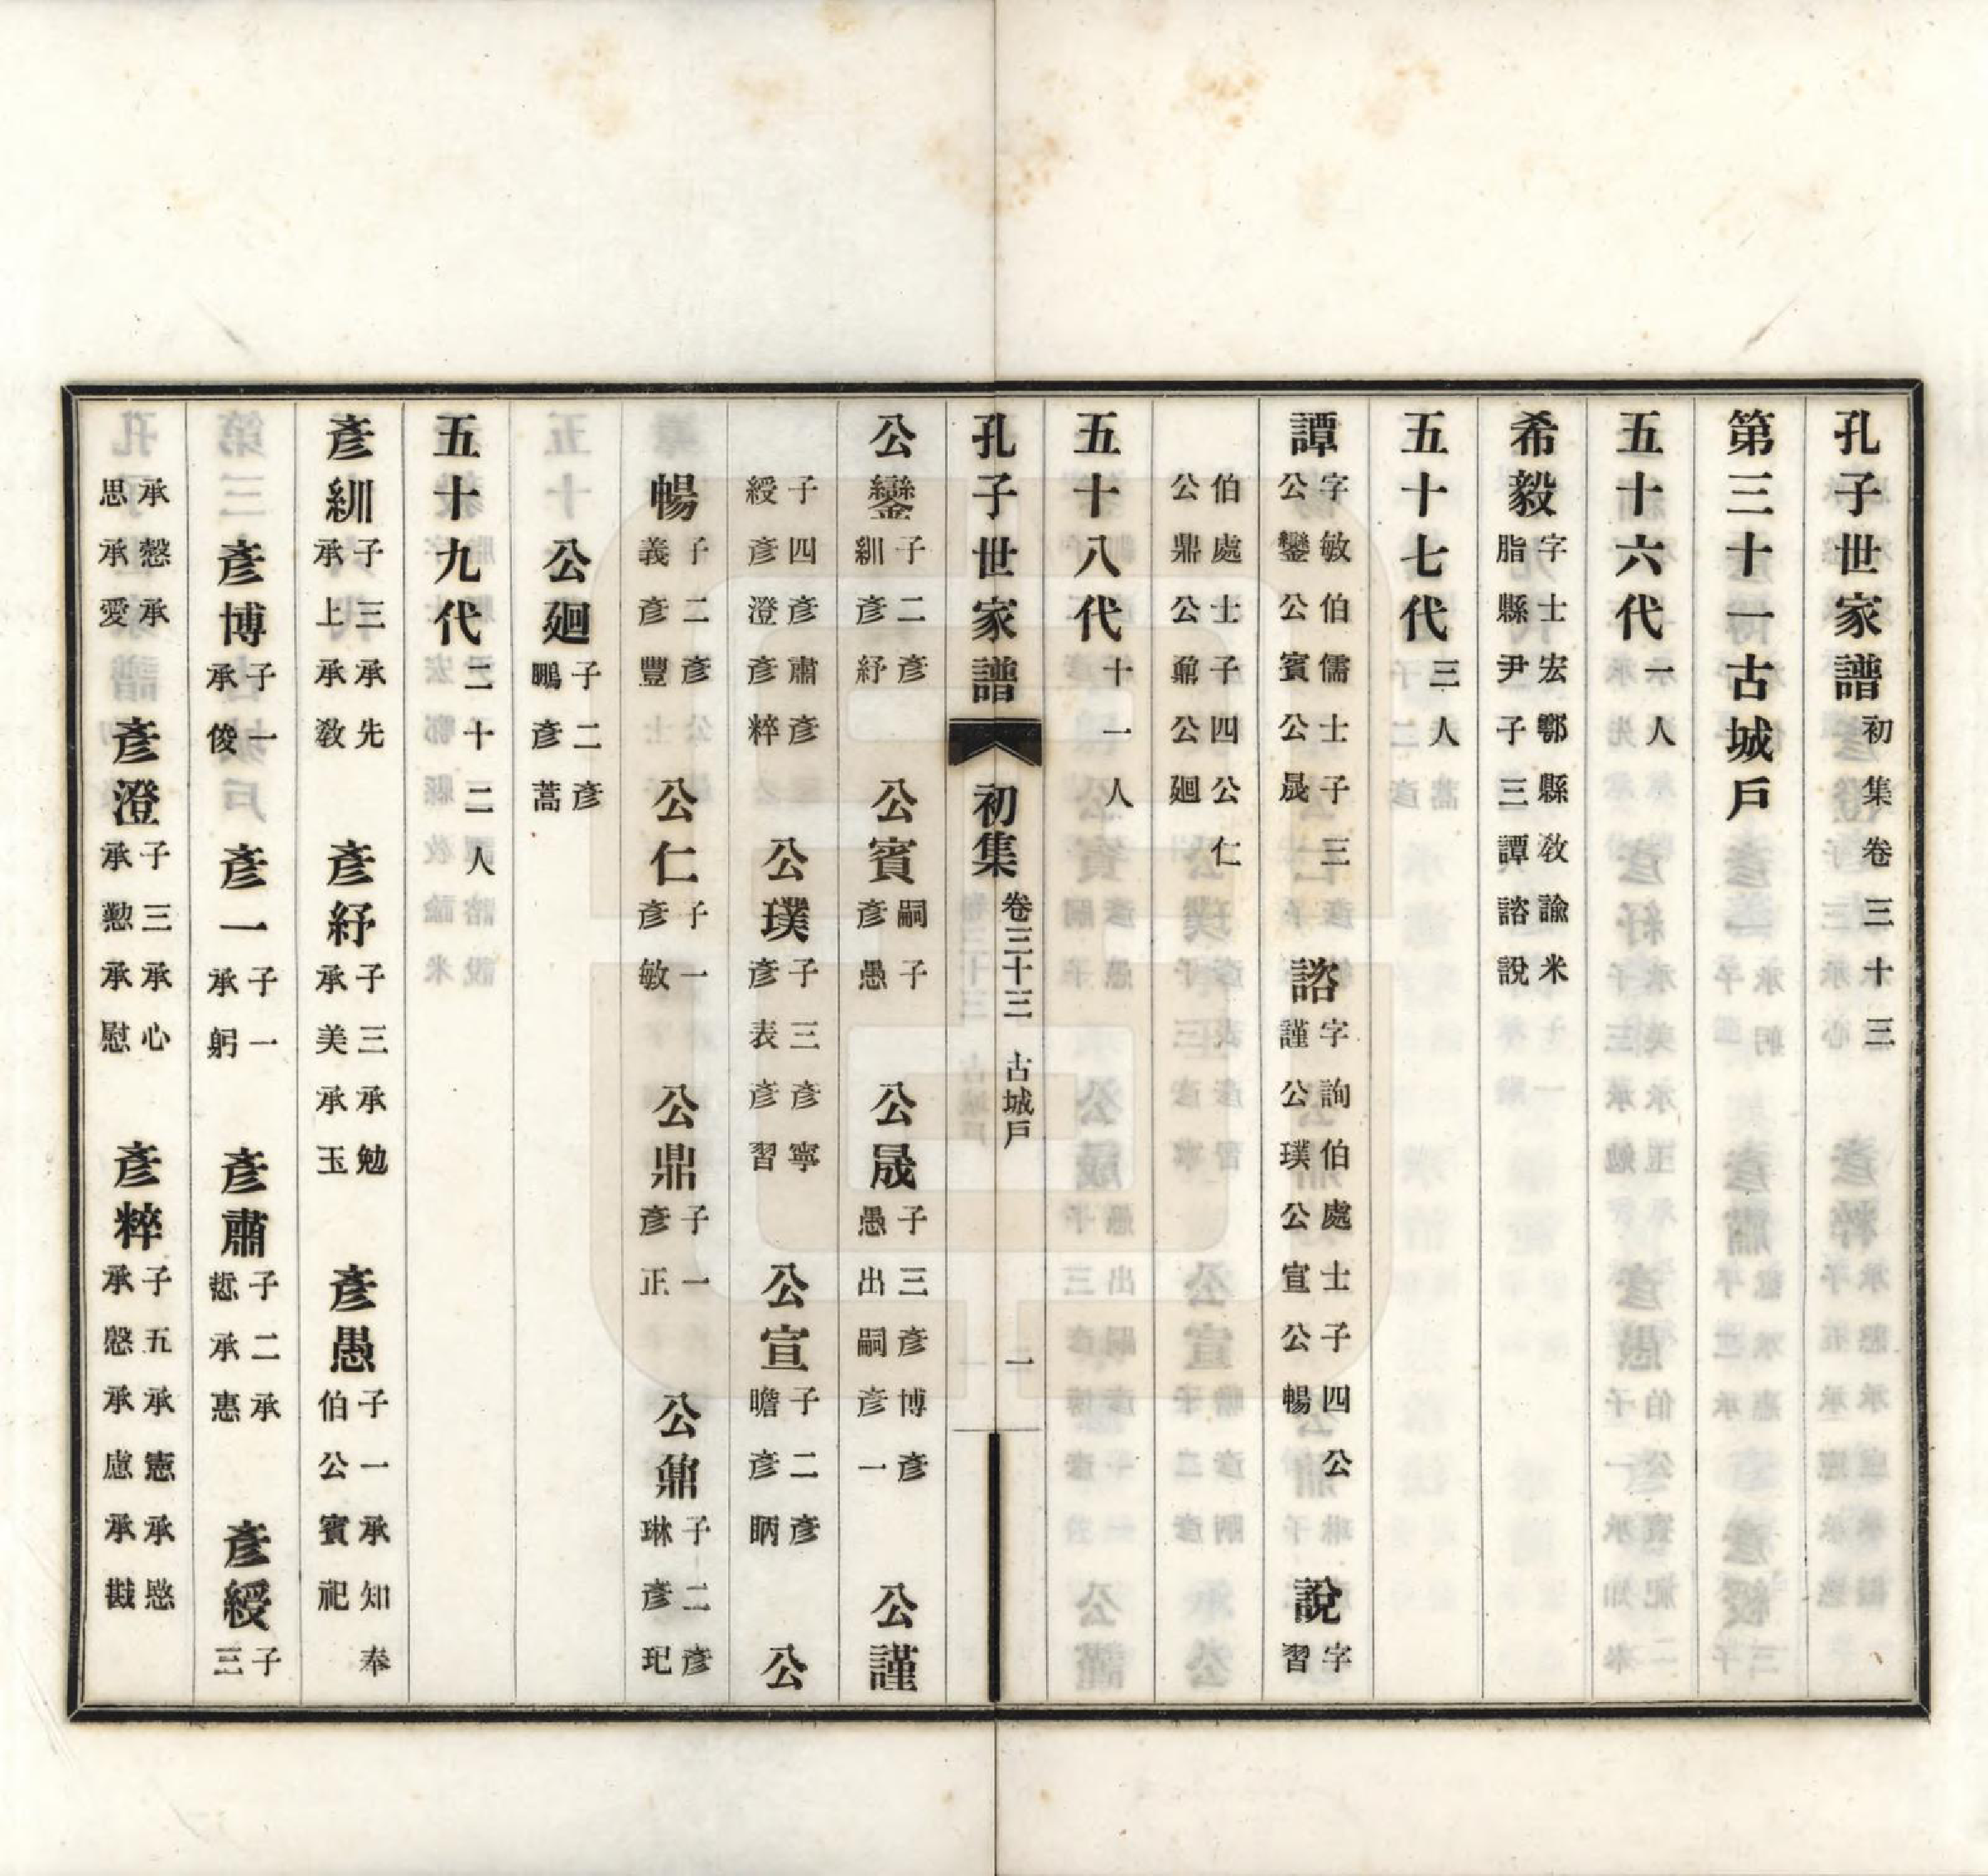 孔子世家譜初集卷三十三
第三十一古城戶
五十六代一人
希毅字士宏鄠縣敎諭米脂縣尹子三譚諮說
五十七代三人
譚字敏伯儒士子三公鑾公賓公晟　諮字詢伯處士子四公謹公璞公宣公暢　說字習
伯處士子四公仁公鼎公鼐公廻
五十八代十一人
孔子世家譜　初集　卷三十三　古城戶　一
公鑾子二彥紃彥紓　公賓嗣子彥愚　公晟子三彥愚出嗣彥博彥一　公謹
子四彥肅彥綬彥澄彥粹　公璞子三彥寧彥表彥習　公宣子二彥瞻彥昞　公
暢子二彥義彥豐　公仁子一彥敏　公鼎子一彥正　公鼐子二彥琳彥玘
公廻子二彥鵬彥蒿
五十九代二十二人
彥紃子三承先承上承敎　彥紓子三承勉承美承玉　彥愚子一承知奉伯公賓祀
彥博子一承俊　彥一子一承躬　彥肅子二承悊承惠　彥綬子三
承思承愨承愛　彥澄子三承心承懃承慰　彥粹子五承憲承慇承愍承慮承戡